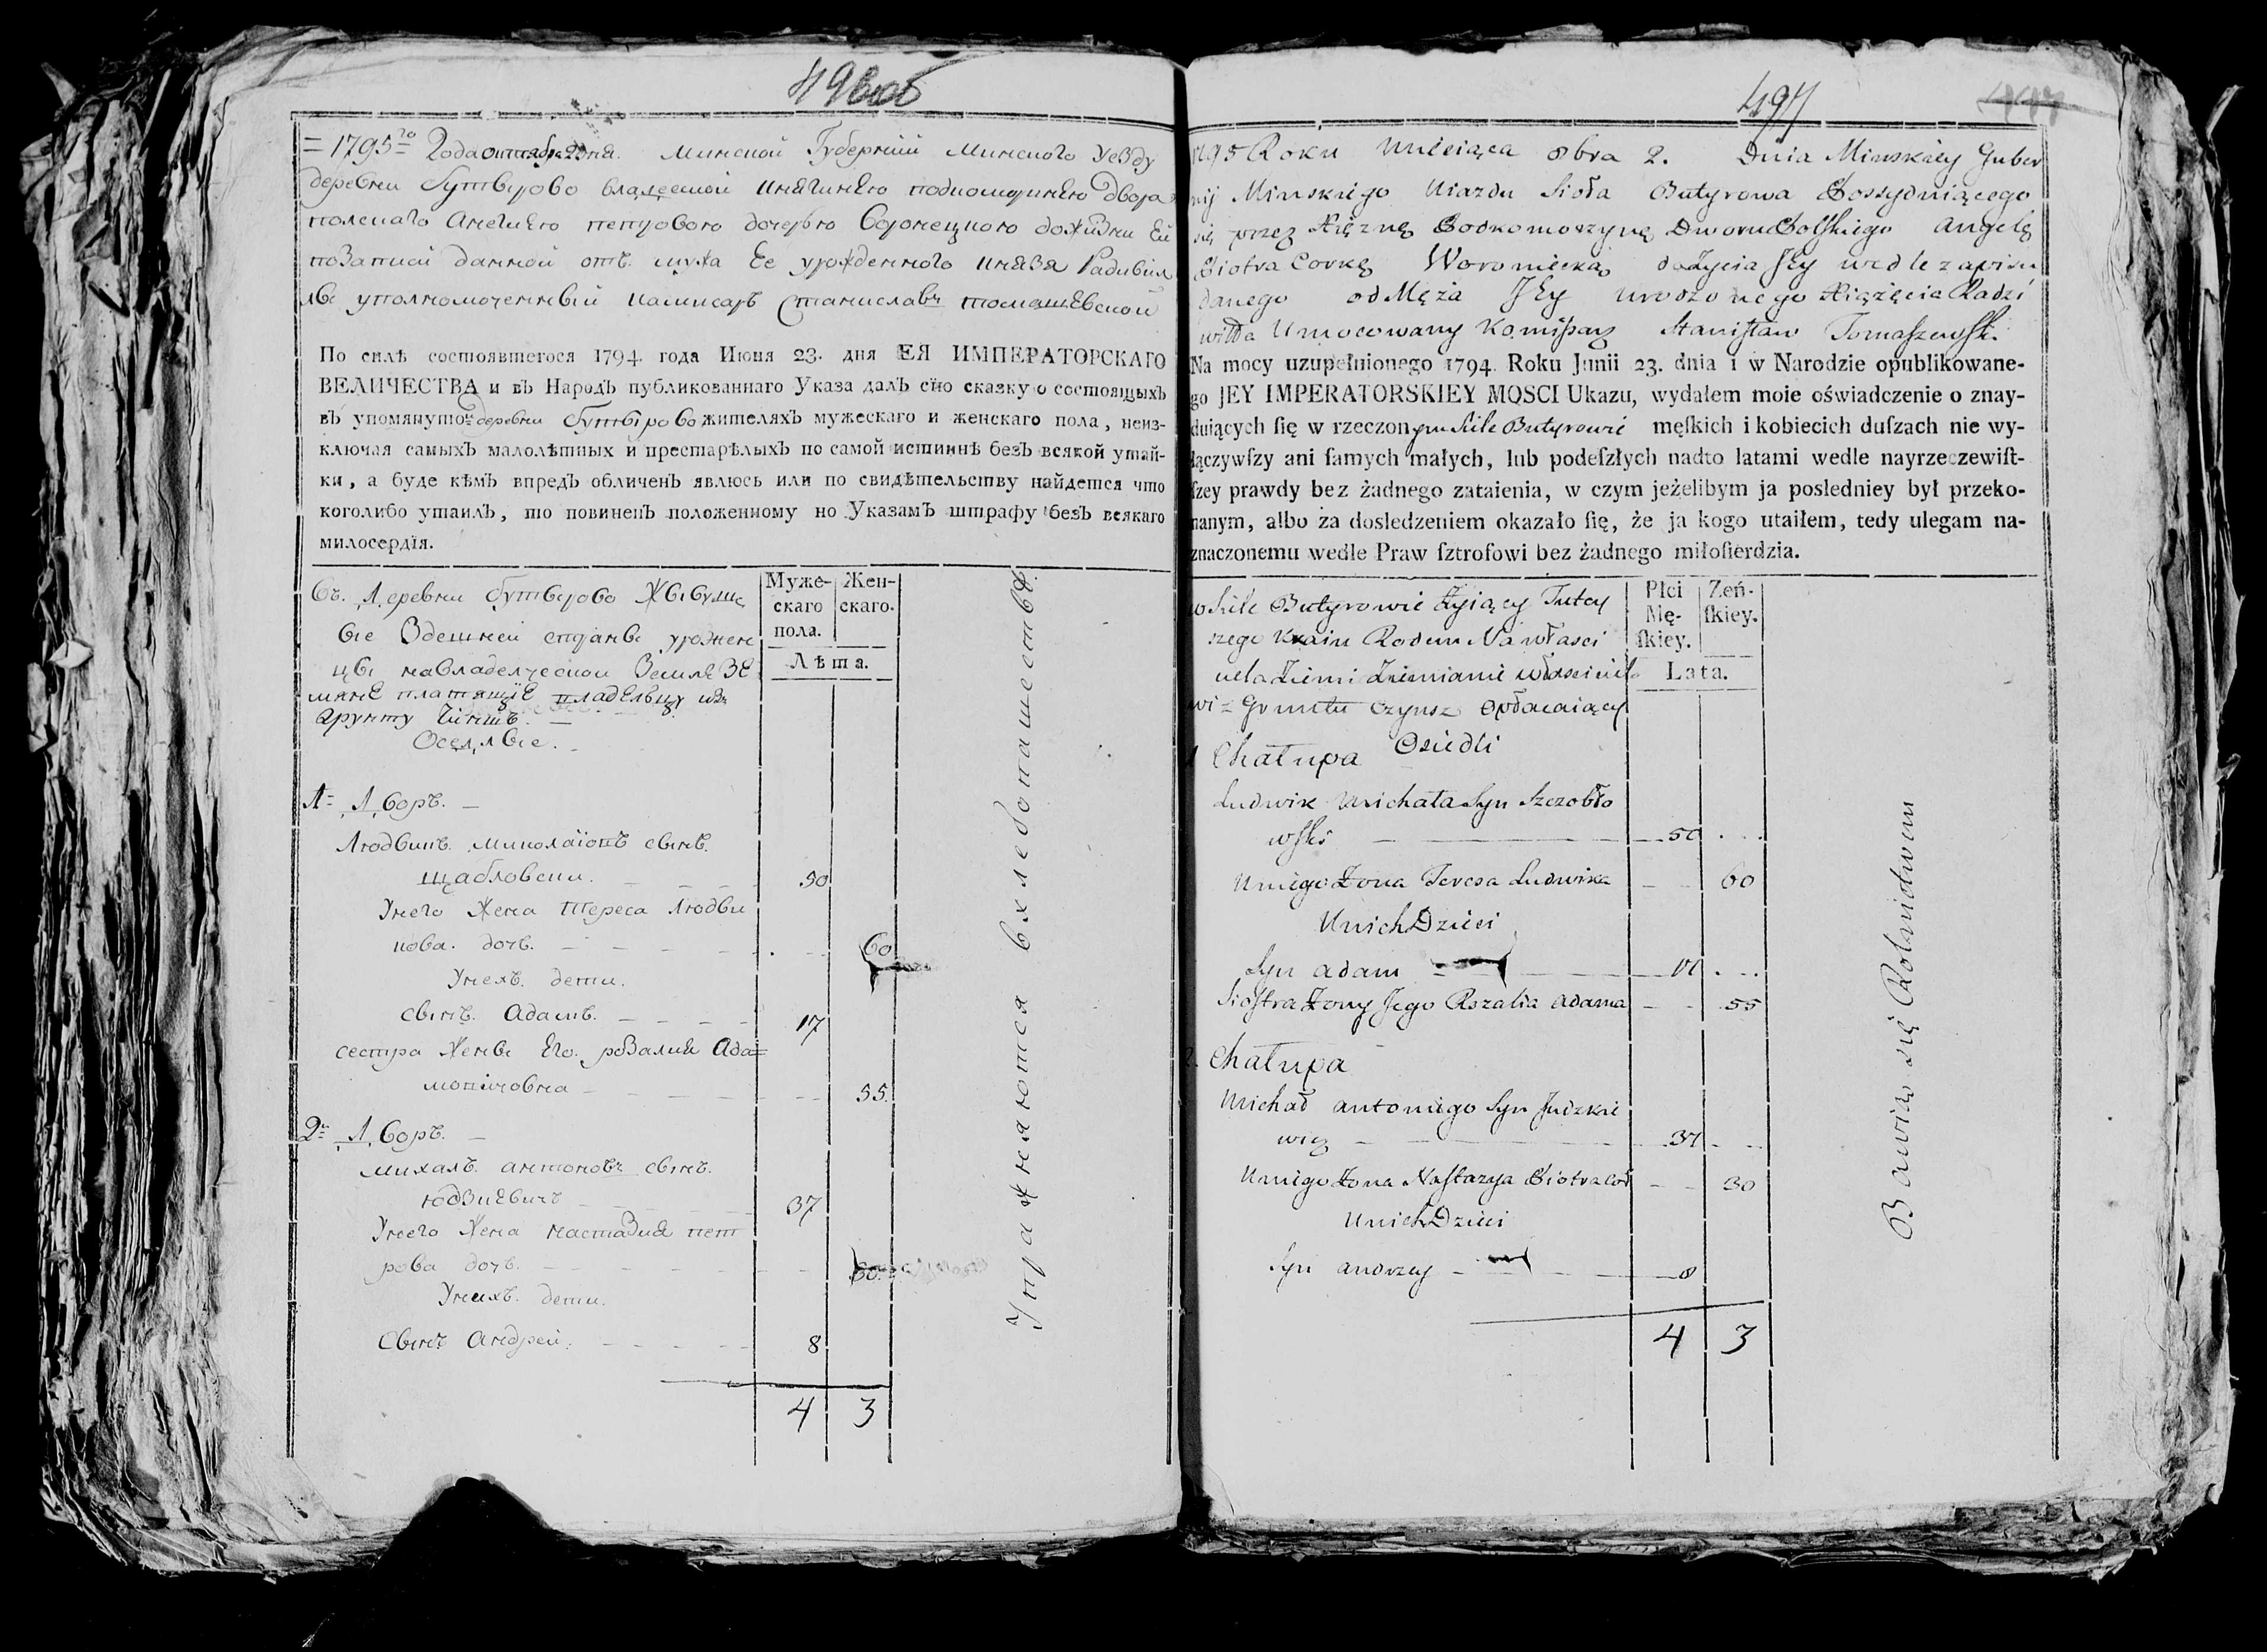 496об
=1795го Года октября 2 дня. Минской Губернiи Минского Уезду
деревни Бутырово владеемой княгинею подкоморинею двора
полскаго Анелиею петровою дочерью Воронецкою дожизни Ей
позаписи данной отъ мужа Ее урожденного князя Радивил
лы уполномоченный камисаръ Станиславъ томашевской
По силѣ состоявшегося 1794 года Июня 23. дня ЕЯ ИМПЕРАТОРСКАГО
ВЕЛИЧЕСТВА и въ Народъ публикованнаго Указа далъ сїю сказку о состоящихъ
въ упомянутой деревни Бутырово жителяхъ мужескаго и женскаго пола, неиз-
ключая самыхъ малолѣтныхъ и престарѣлыхъ по самой истиннѣ безъ всякой утай-
ки, а буде кѣмъ впредъ обличенъ явлюсь или по свидѣтельству найдется что
коголибо утаилъ, то повиненъ положенному по Указамъ штрафу безъ всякаго
милосердїя.
Муже-
скаго
пола.
Жен-
скаго.
Лѣта.
Въ деревни Бутырово Живущ
ые Здешней страны урожен
цы навладелческой Земле Зе
мяне платящiе владельцу изъ
грунту Чиншъ. —
Оседлые.
1= Дворъ. —
Людвикъ Миколаiовъ сынъ
щабловски. 50
Унего Жена Тереса Людви
кова дочъ. 60
Унехъ дети.
сынъ Адамъ. 17
сестра Жены Его розалия Ада=
мовичовна 55
2= Дворъ. —
михалъ антоновъ сынъ
юдзкевичъ 37
Унего Жена настазия пет
рова дочъ. 30
Унихъ дети.
Сынъ Андрей. 8
4 3
Упражняются в хлебопашестве.
497
1795 Roku Miesiąca 8bra 2. Dnia Minskiey Guber
nij Minskiego Uiazdu Sioła Butyrowa Possyduiącego
się przez Xiężnę Podkomorzynę Dworu Polskiego Angelę
Piotra Corkę Woroniecką do Życia Jey wedle zapisu
danego od Męża Jey urodzonego Xiążęcia Radzi
wiłła Umocowany Komisarz Stanisław Tomaszewski
Na mocy uzupełnionego 1794 Roku Junii 23. dnia i w Narodzie opublikowane-
go JEY IMPERATORSKIEY MOSCI Ukazu, wydałem moie oświadczenie o znay-
duiących ſię w rzeczonym Siele Butyrowie męſkich i kobiecich duſzach nie wy-
łączywſzy ani ſamych małych, lub podeſzłych nadto latami wedle nayrzeczewiſt-
ſzey prawdy bez żadnego zataienia, w czym jeżelibym ja posledniey był przeko-
nanym, albo za dosledzeniem okazało ſię, że ja kogo utaiłem, tedy ulegam na-
znaczonemu wedle Praw ſztrofowi bez żadnego miłoſierdzia.
Płci
Mę-
ſkiey.
Zeń-
ſkiey.
Lata.
w Siele Butyrowie Żyiący Tutey
szego Kraiu Rodem Na własci
cela Ziemi Ziemianie własciciel
wi z Gruntu Czynsz Opłacaiący
Osiedli
1 Chałupa
Ludwik Michała Syn Szczobło
wski 50
U niego Żona Teresa Ludwika 60
U nich Dzieci
Syn Adam 17
Siostra Żony Jego Rozalia Adama 55
2. Chałupa
Michał Antoniego Syn Judzkie
wicz 37
U niego Żona Nastazya Piotra Cor 30
U nich Dzieci
Syn Andrzey 8
4 3
Bawią się Rolnictwem